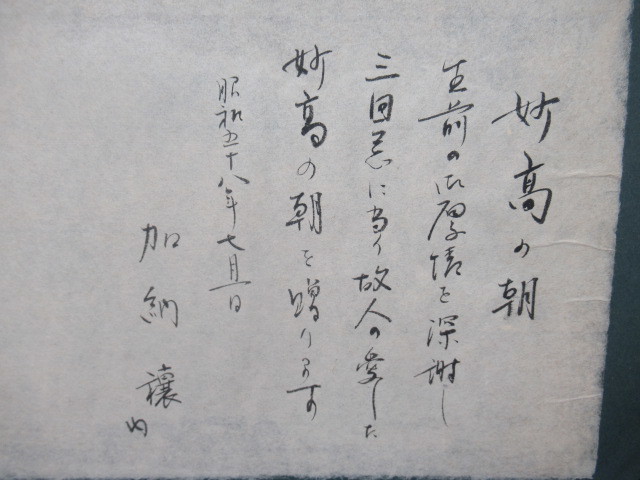 妙高の朝
生前の御厚情を深謝し
三回忌に当り故人の愛した
妙高の朝を贈ります
昭和五十八年七月一日
加納 穰
内